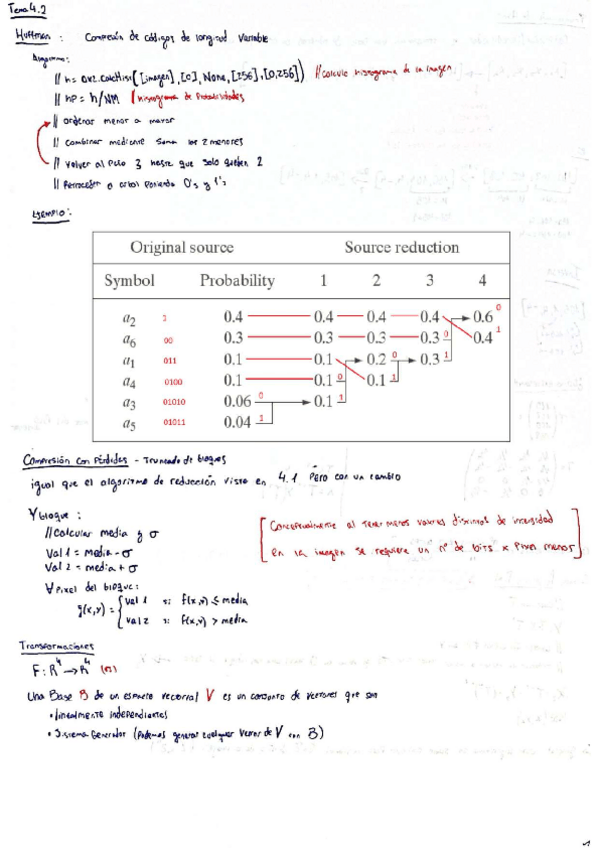 Tema 4.2
Huffman : Compresión de códigos de longitud variable
Algoritmo:
// h = cv2.calcHist([imagen],[0],None,[256],[0,256]) // calcula histograma de la imagen
// hp = h/NM // histograma de Probabilidades
// ordenar menor a mayor
// Combinar mediante suma los 2 menores
// Volver al paso 3 hasta que solo queden 2
// Retroceder o arbol poniendo 0's y 1's
EJEMPLO:
Original source Source reduction
Symbol Probability 1 2 3 4
a2 1 0.4 0.4 0.4 0.4 0.6 0
a6 00 0.3 0.3 0.3 0.3 0 0.4 1
a1 011 0.1 0.1 0.2 0 0.3 1
a4 0100 0.1 0.1 0 0.1 1
a3 01010 0.06 0 0.1 1
a5 01011 0.04 1
Compresión con Pérdidas - Truncado de bloques
igual que el algoritmo de reducción visto en 4.1 Pero con un cambio
∀ bloque :
// Calcular media y σ
Val 1 = media - σ
Val 2 = media + σ
[Conceptualmente al tener menos valores distintos de intensidad
en la imagen se requiere un nº de bits x Pixel menos]
∀ Pixel del bloque:
g(x,y) = { val 1 si f(x,y) ≤ media
val 2 si f(x,y) > media
Transformaciones
F: R⁴ → R⁴
Una Base B de un espacio vectorial V es un conjunto de vectores que son
• linealmente independientes
• Sistema Generador (Podemos generar cualquier vector de V con B)
1